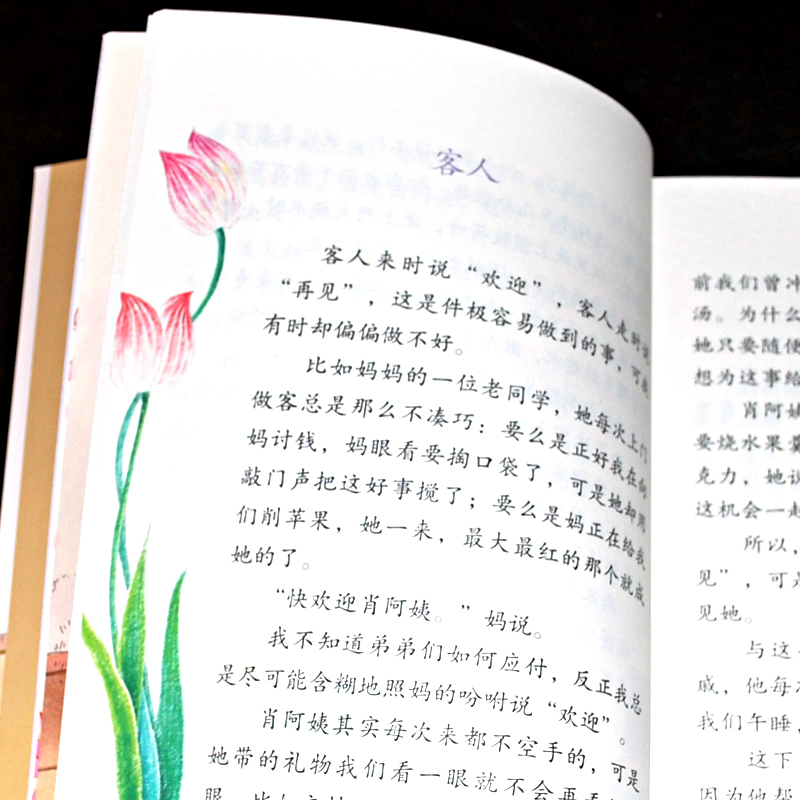 客人
客人来时说“欢迎”，客人走时说
“再见”，这是件极容易做到的事，可我
有时却偏偏做不好。
比如妈妈的一位老同学，她每次上门
做客总是那么不凑巧：要么是正好我在向
妈讨钱，妈眼看要掏口袋了，可是她却用
敲门声把这好事搅了；要么是妈正在给我
们削苹果，她一来，最大最红的那个就成
她的了。
“快欢迎肖阿姨。”妈说。
我不知道弟弟们如何应付，反正我总
是尽可能含糊地照妈的吩咐说“欢迎”。
肖阿姨其实每次来都不空手的，可是
她带的礼物我们看一眼就不会再
眼，比如
前我们曾冲
汤。为什么
她只要随便
想为这事给
肖阿姨
要烧水果羹
克力，她说
这机会一起
所以，
见”，可是
见她。
与这
戚，他每次
我们午睡，
这下
因为他帮